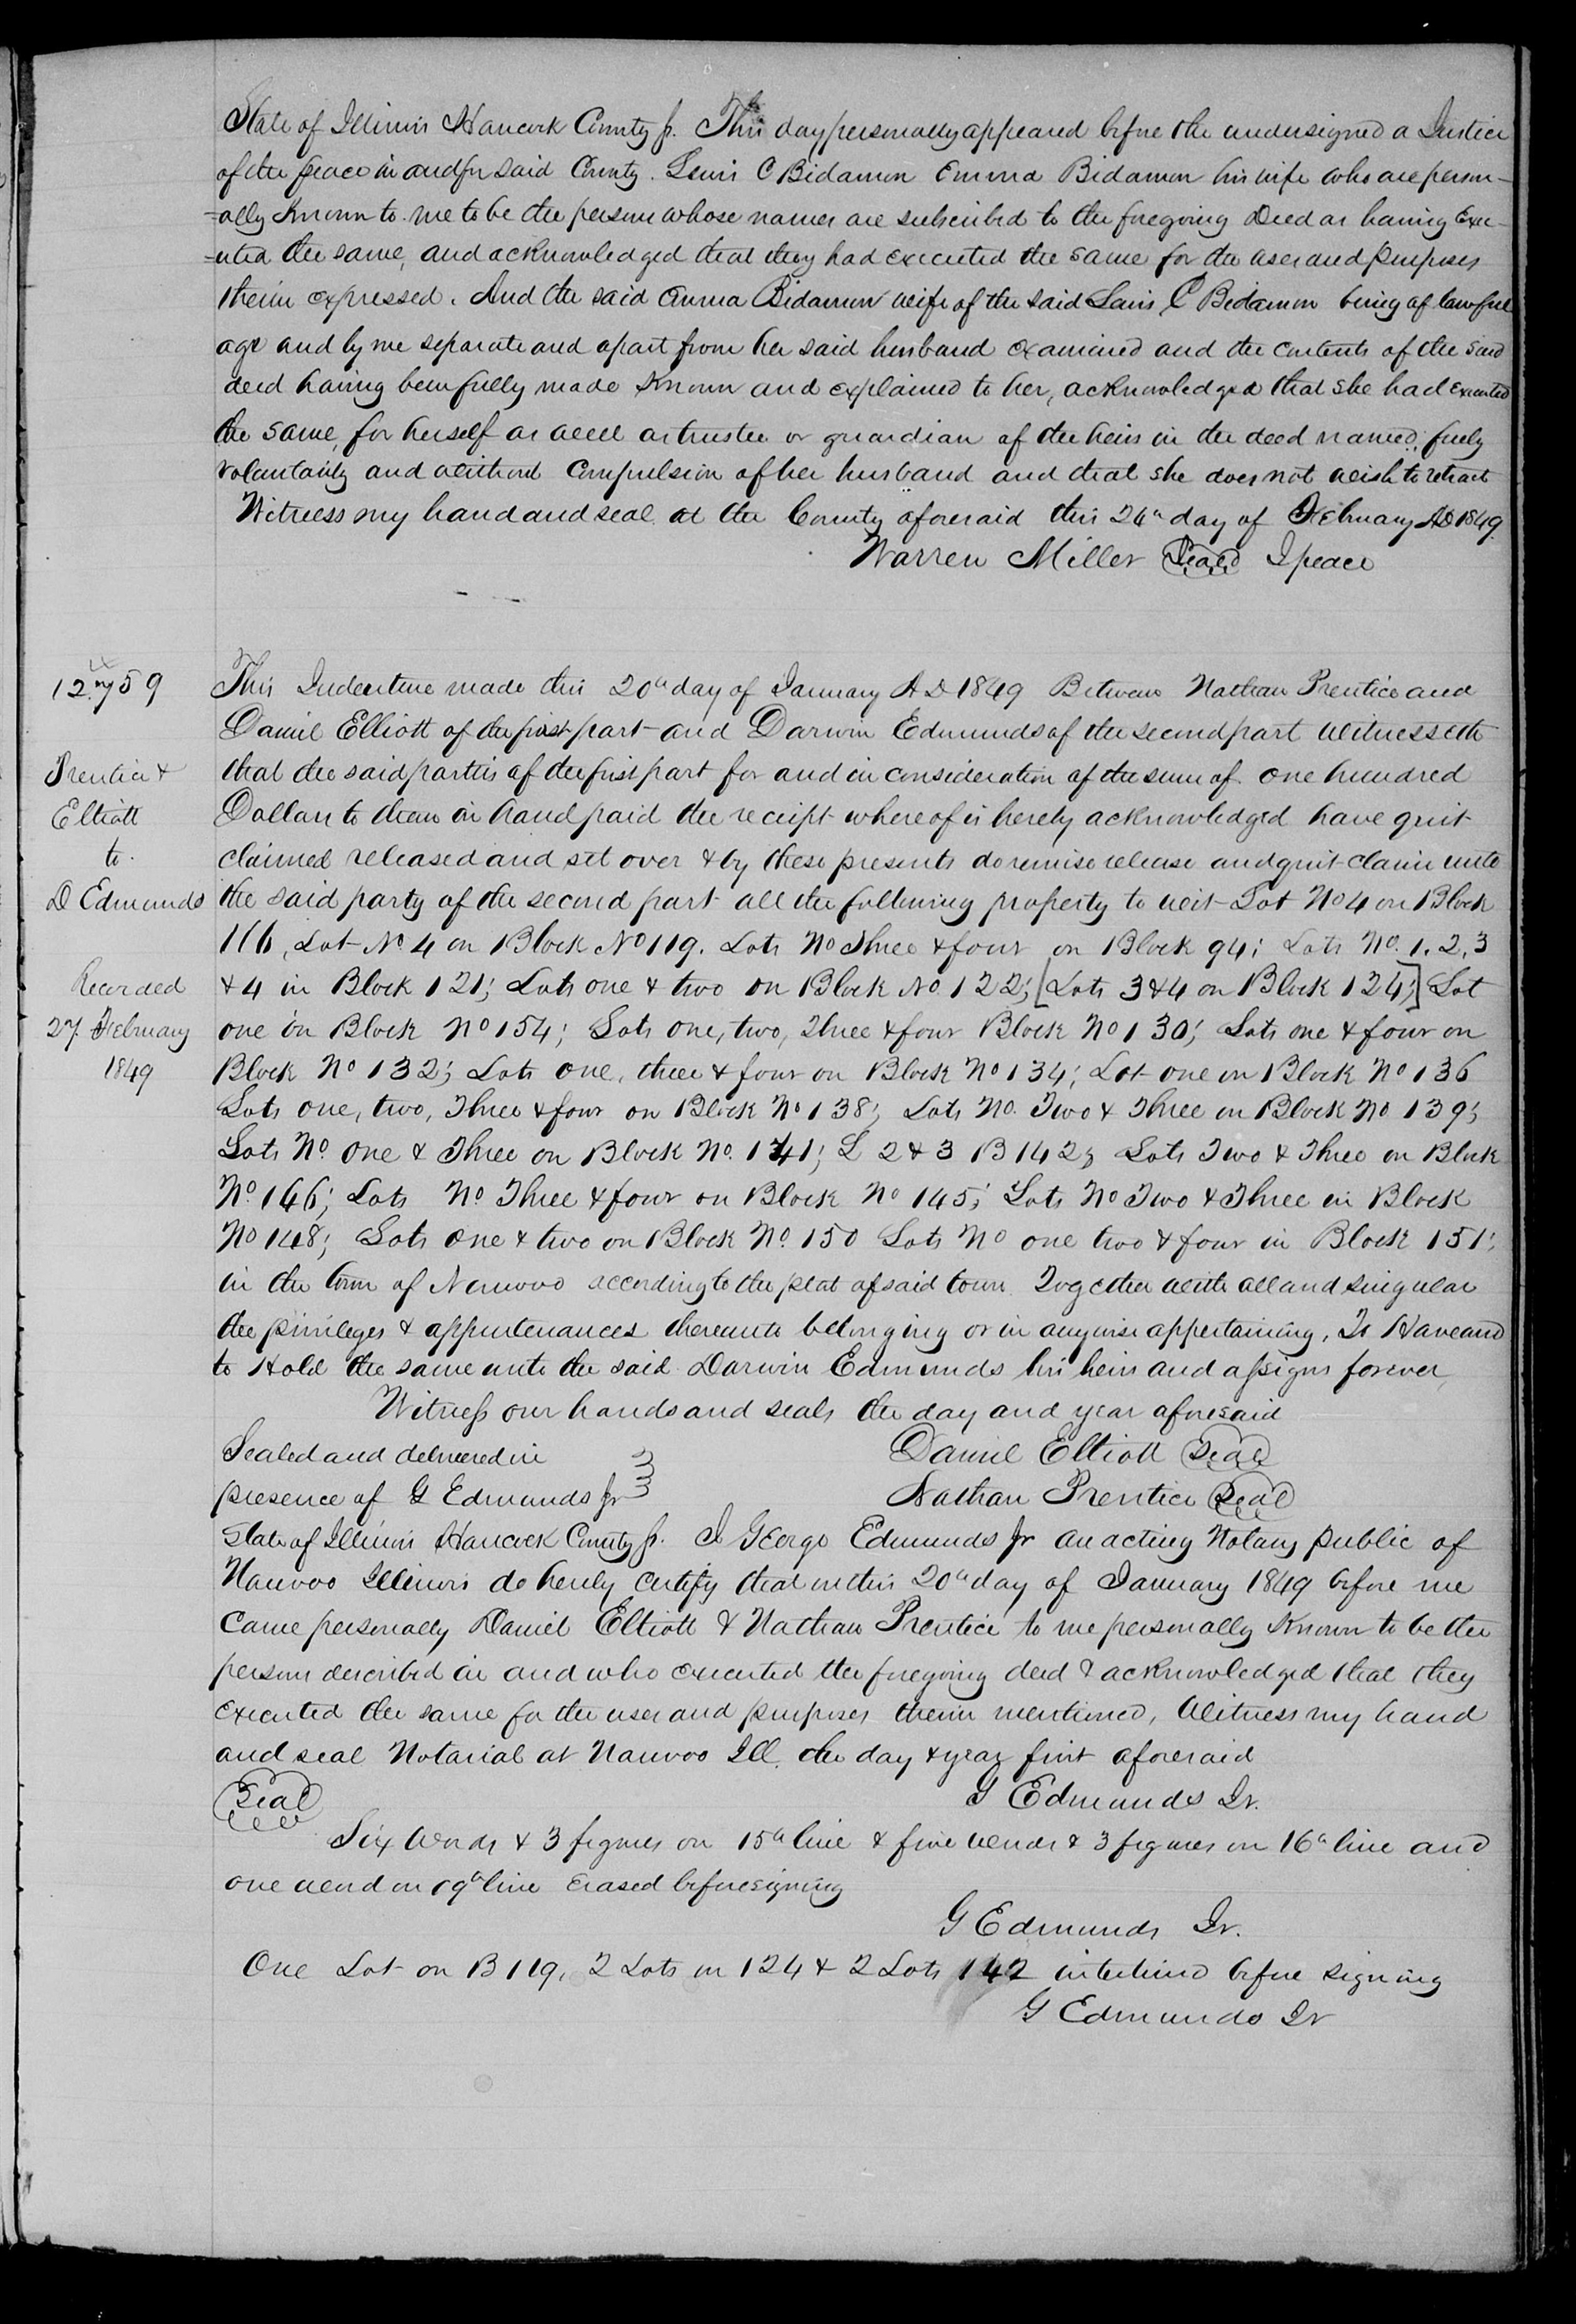 State of Illinois Hancock County ss. This day personally appeared before the undersigned a Justice
of the peace in and for said County. Lewis C Bidamon Emma Bidamon his wife who are person-
-ally Known to me to be the persons whose names are subscribed to the foregoing Deed as having Exec-
-uted the same, and acknowledged that they had executed the same for the uses and purposes
therein expressed. And the said Emma Bidamon wife of the said Lewis C Bidamon being of lawful
age and by me separate and apart from her said husband examined and the contents of the said
deed having been fully made Known and explained to her, acknowledged that she had executed
the same, for herself as well as trustee or guardian of the heirs in the deed named, freely
voluntarily and without compulsion of her husband and that she does not wish to retract
Witness my hand and seal at the County aforesaid this 26th day of February AD 1849.
Warren Miller Seal J peace
12.759
Prentice &
Elliott
to.
D Edmunds
Recorded
27. February
1849
This Indenture made this 20th day of January A D 1849 Between Nathan Prentice and
Daniel Elliott of the first part and Darwin Edmunds of the second part Witnesseth
that the said parties of the first part for and in consideration of the sum of one hundred
Dollars to them in hand paid the receipt whereof is hereby acknowledged have quit
claimed released and set over & by these presents do remise release and quit-claim unto
the said party of the second part all the following property to wit Lot No 4 on Block
116, Lot No. 4 on Block No 119. Lots No Three & four on Block 94; Lots No. 1. 2. 3
& 4 in Block 121; Lots one & two on Block No. 122; [Lots 3 & 4 on Block 124;] Lot
one in Block No 154; Lots one, two, Three & four Block No 130; Lots one & four on
Block No 132; Lots one, three & four on Block No 134; Lot one on Block No 136
Lots one, two, Three & four on Block No 138; Lots No. Two & Three on Block No. 139;
Lots No. one & Three on Block No. 141; L 2 & 3 B 142; Lots Two & Three on Block
No. 146; Lots No. Three & four on Block No 145; Lots No Two & Three in Block
No 148; Lots one & two on Block No. 150 Lots No one two & four in Block 151;
in the town of Nauvoo according to the plat of said town. Together with all and singular
the privileges & appurtenances thereunto belonging or in anywise appertaining, To Have and
to Hold the same unto the said Darwin Edmunds his heirs and assigns forever,
Witness our hands and seals the day and year aforesaid
Sealed and delivered in
presence of G Edmunds Jr
Daniel Elliott Seal
Nathan Prentice Seal
State of Illinois Hancock County ss. I George Edmunds Jr an acting Notary public of
Nauvoo Illinois do hereby certify that on this 20th day of January 1849 before me
came personally Daniel Elliott & Nathan Prentice to me personally Known to be the
persons described in and who executed the foregoing deed & acknowledged that they
executed the same for the uses and purposes therein mentioned, Witness my hand
and seal Notarial at Nauvoo Ill. the day & year first aforesaid
Seal
G Edmunds Jr.
Six words & 3 figures on 15th line & five words & 3 figures on 16th line and
one word on 19th line Erased before signing
G Edmunds Jr.
One Lot on B 119, 2 Lots on 124 & 2 Lots 142 interlined before signing
G Edmunds Jr